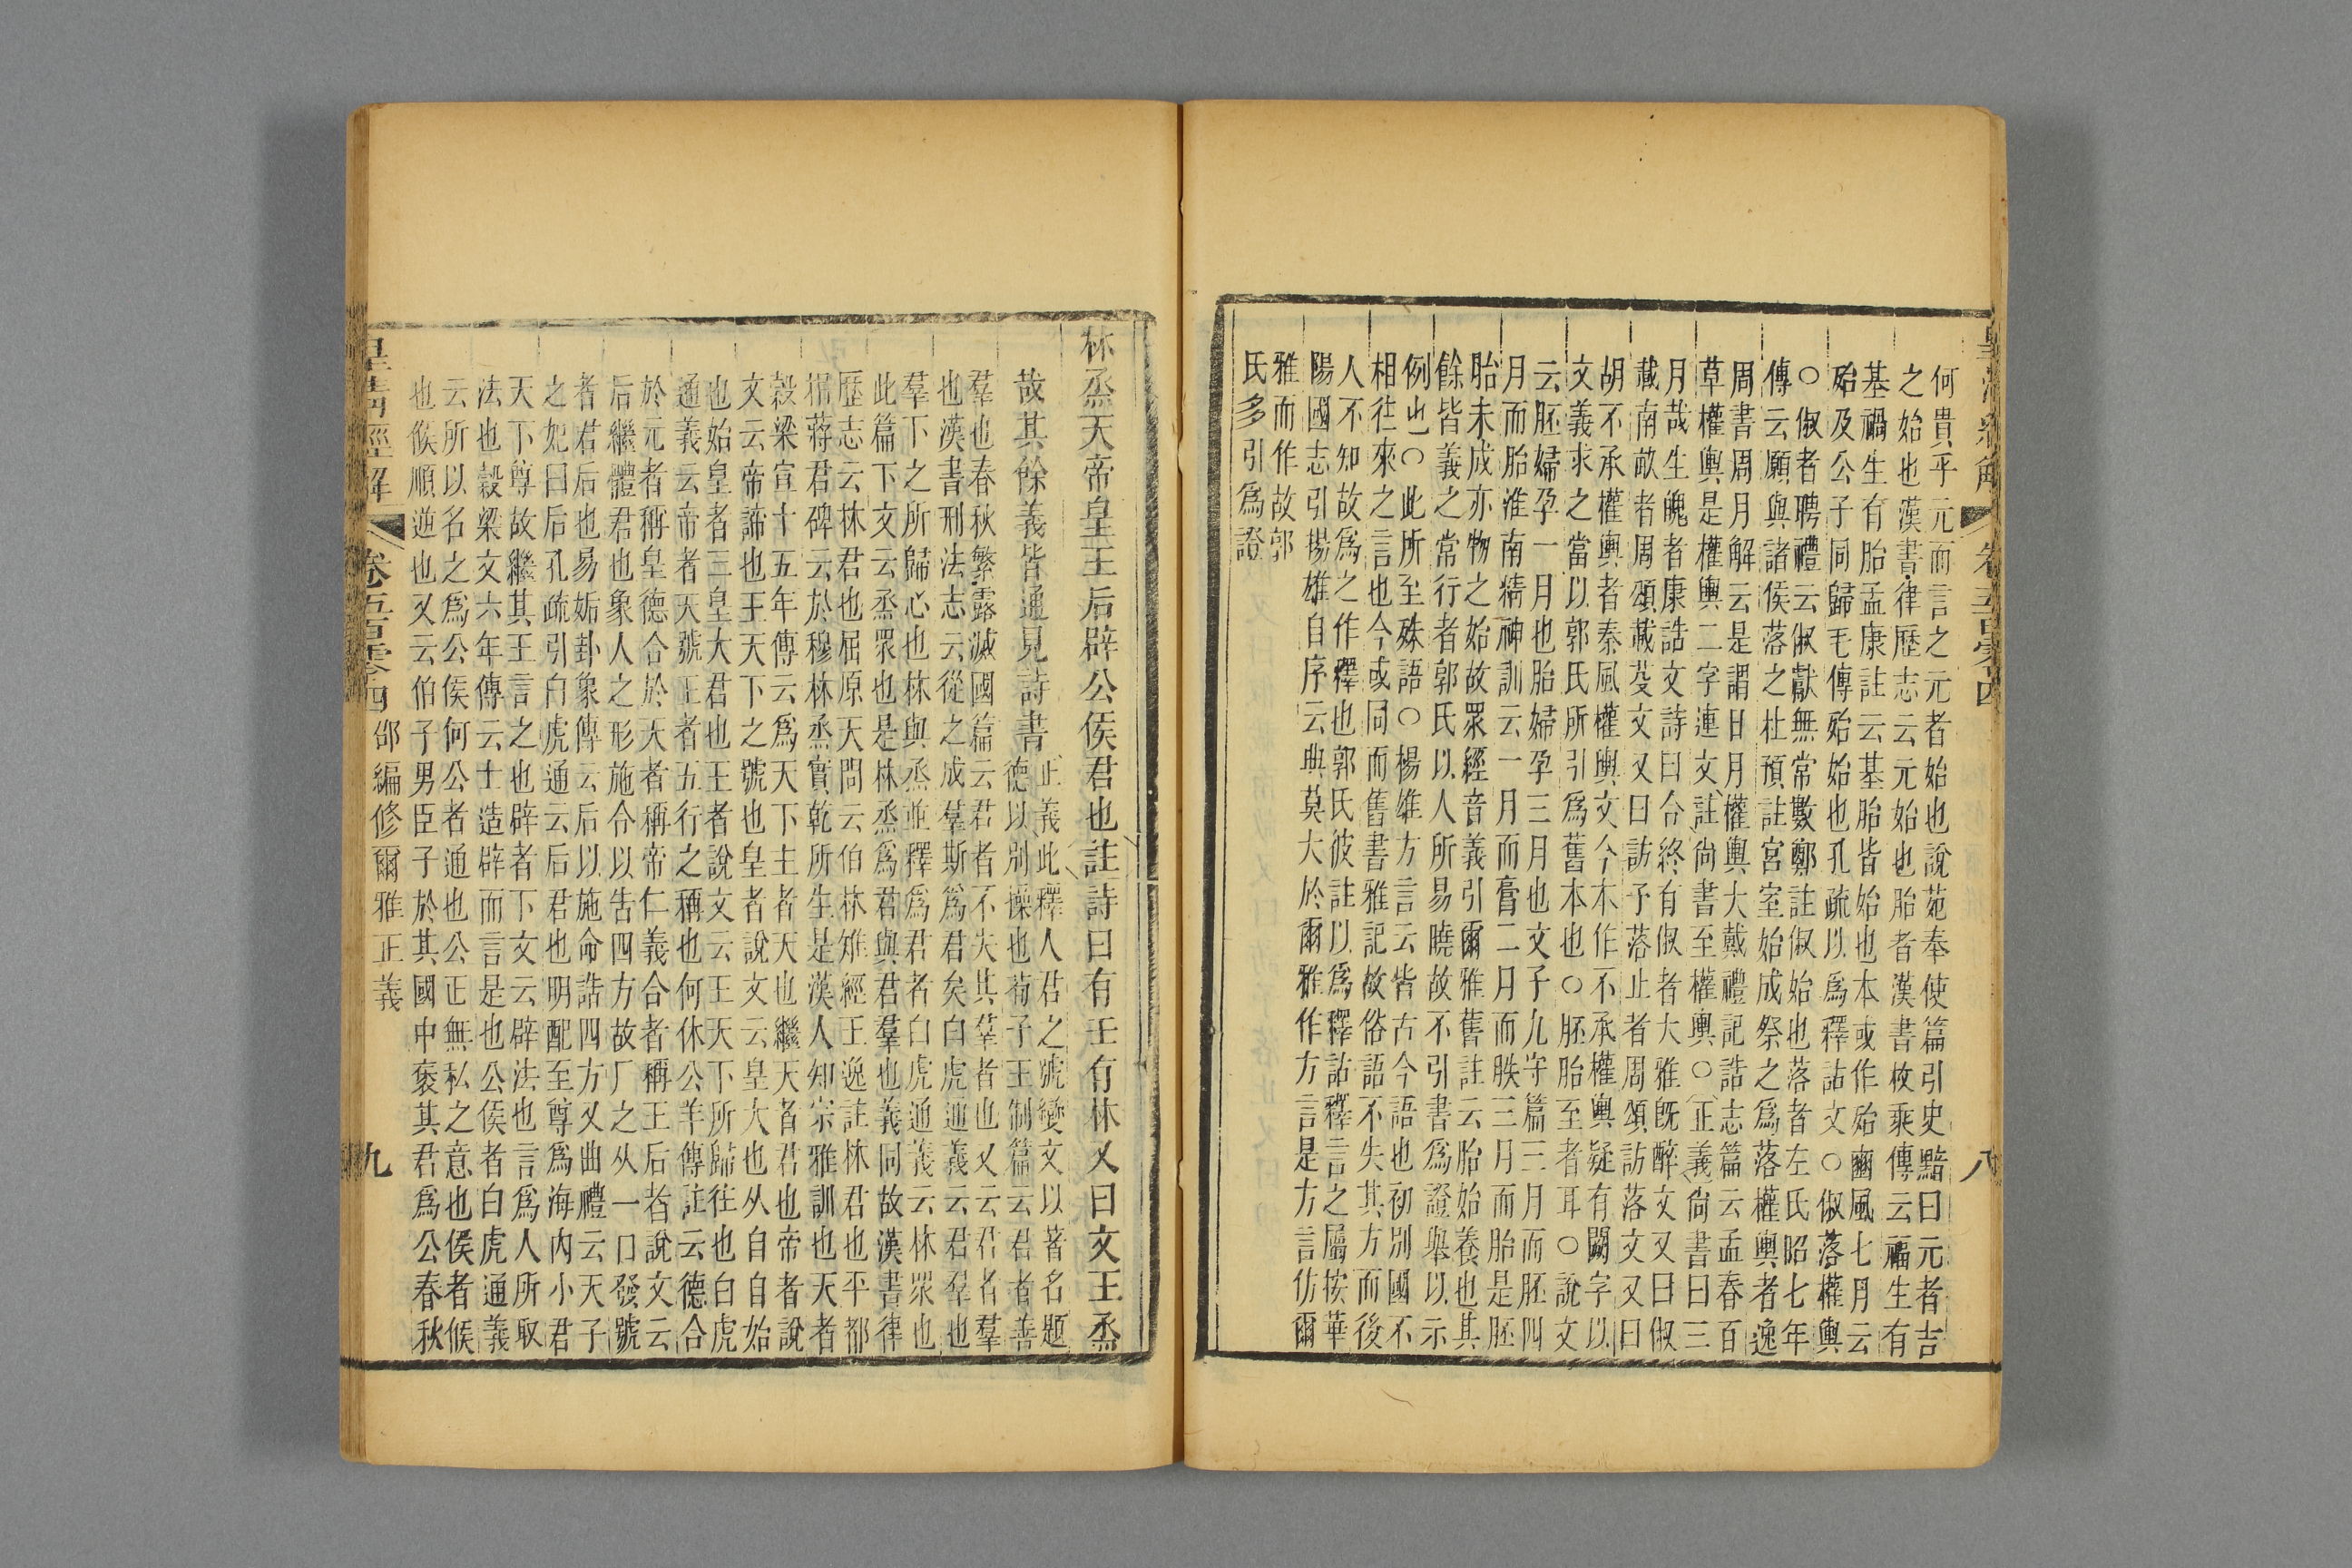 皇清經解 卷五百零四 八
何貴乎元而言之元者始也說苑奉使篇引史黯曰元者吉
之始也漢書律歷志云元始也胎者漢書枚乘傳云福生有
基禍生有胎孟康註云基胎皆始也本或作殆豳風七月云
殆及公子同歸毛傳殆始也孔疏以爲釋詁文○俶落權輿
○俶者聘禮云俶獻無常數鄭註俶始也落者左氏昭七年
傳云願與諸侯落之杜預註宮室始成祭之爲落權輿者逸
周書周月解云是謂日月權輿大戴禮記誥志篇云孟春百
草權輿是權輿二字連文註尚書至權輿○正義尚書曰三
月哉生魄者康誥文詩曰令終有俶者大雅旣醉文又曰俶
載南畝者周頌載芟文又曰訪予落止者周頌訪落文又曰
胡不承權輿者秦風權輿文今本作不承權輿疑有闕字以
文義求之當以郭氏所引爲舊本也○胚胎至者耳○說文
云胚婦孕一月也胎婦孕三月也文子九守篇三月而胚四
月而胎淮南精神訓云一月而膏二月而胅三月而胎是胚
胎未成亦物之始故眾經音義引爾雅舊註云胎始養也其
餘皆義之常行者郭氏以人所易曉故不引書爲證舉以示
例也○此所至殊語○楊雄方言云皆古今語也初別國不
相往來之言也今或同而舊書雅記故俗語不失其方而後
人不知故爲之作釋也郭氏彼註以爲釋詁釋言之屬按華
陽國志引揚雄自序云典莫大於爾雅作方言是方言仿爾
雅而作故郭
氏多引爲證
林烝天帝皇王后辟公侯君也註詩曰有壬有林又曰文王烝
哉其餘義皆通見詩書
正義此釋人君之號變文以著名題
德以別懆也荀子王制篇云君者善
羣也春秋繁露滅國篇云君者不失其羣者也又云君者名羣
也漢書刑法志云從之成羣斯爲君矣白虎通義云君羣也
羣下之所歸心也林與烝並釋爲君者白虎通義云林眾也
此篇下文云烝眾也是林烝爲君與君羣也義同故漢書律
歷志云林君也屈原天問云伯林雉經王逸註林君也平都
相蔣君碑云於穆林烝實乾所生是漢人知宗雅訓也天者
穀梁宣十五年傳云爲天下主者天也繼天者君也帝者說
文云帝諦也王天下之號也皇者說文云皇大也从自自始
也始皇者三皇大君也王者說文云王天下所歸往也白虎
通義云帝者天號王者五行之稱也何休公羊傳註云德合
於元者稱皇德合於天者稱帝仁義合者稱王后者說文云
后繼體君也象人之形施令以告四方故厂之从一口發號
者君后也易姤卦象傳云后以施命誥四方又曲禮云天子
之妃曰后孔疏引白虎通云后君也明配至尊爲海內小君
天下尊故繼其王言之也辟者下文云辟法也言爲人所取
法也穀梁文六年傳云士造辟而言是也公侯者白虎通義
云所以名之爲公侯何公者通也公正無私之意也侯者候
也候順逆也又云伯子男臣子於其國中褒其君爲公春秋
皇清經解 卷五百零四 邵編修爾雅正義 九